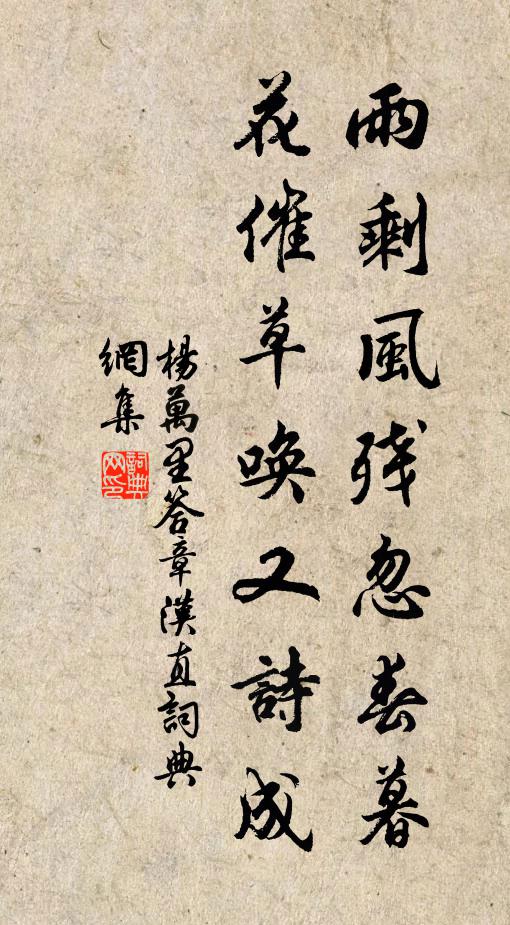 雨剩風残忽春暮
花催草喚又詩成
楊萬里答章漢直詞典
網集
詞典
网印